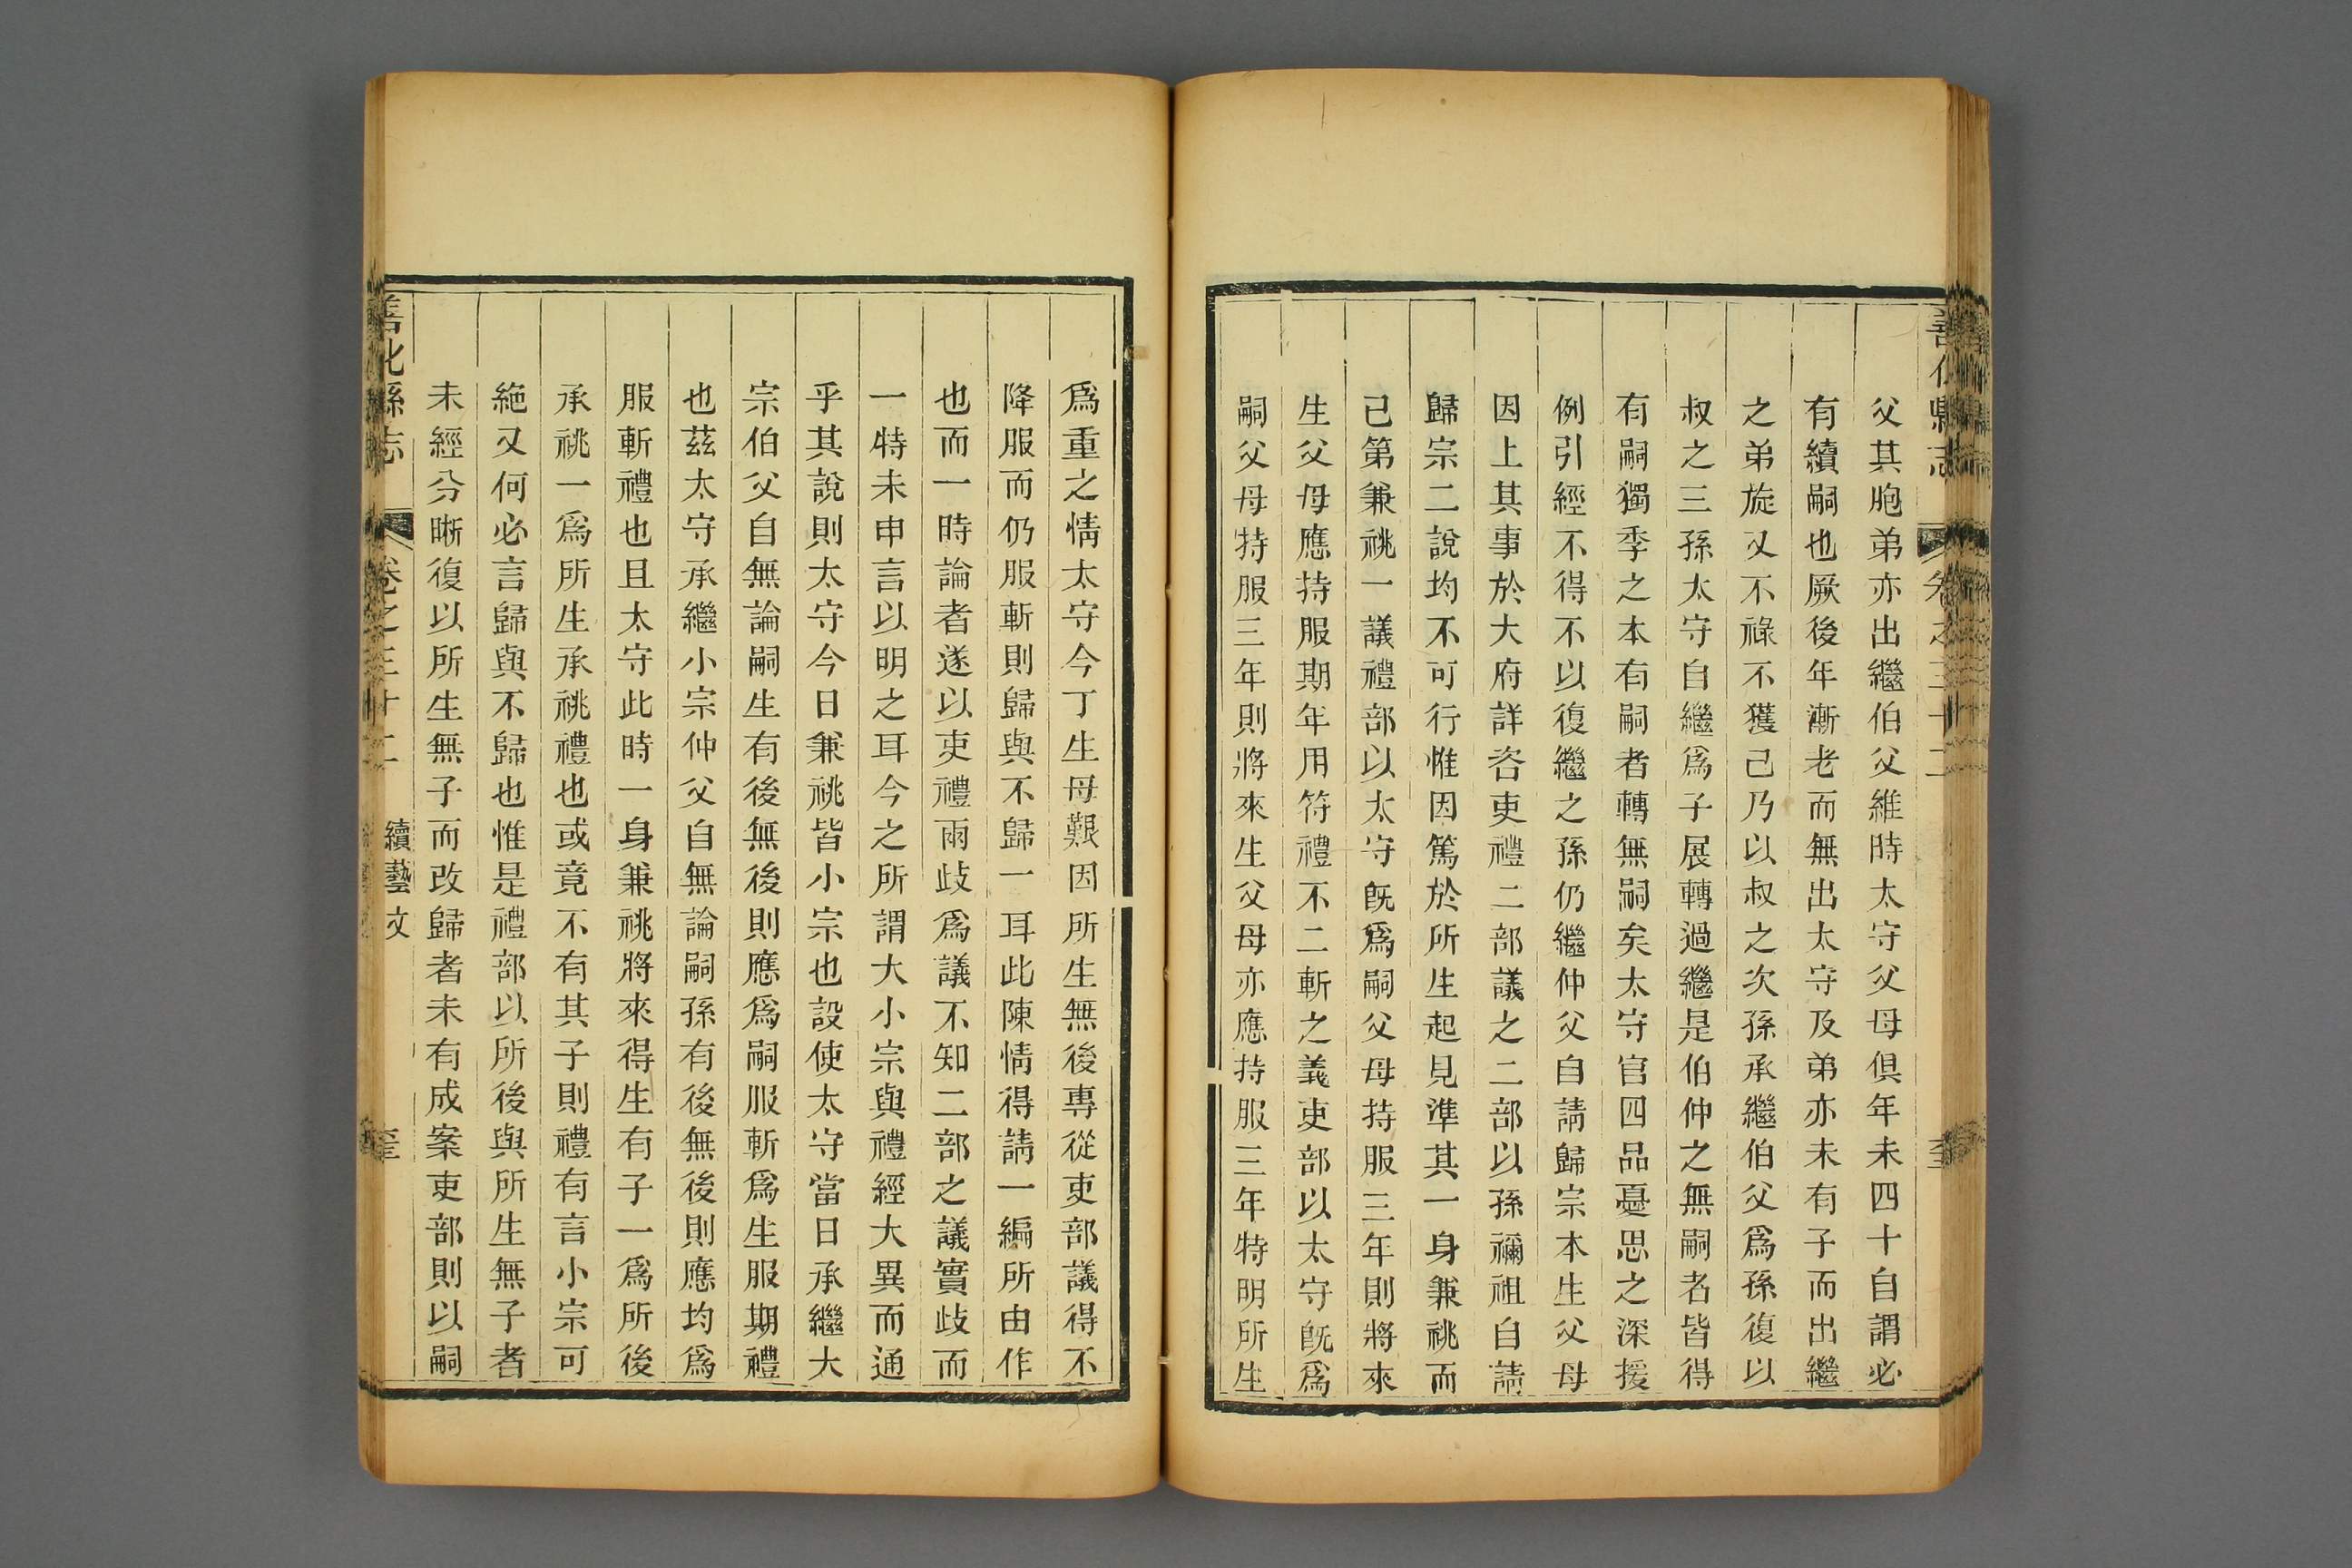 父其胞弟亦出繼伯父維時太守父母俱年未四十自謂必
有續嗣也厥後年漸老而無出太守及弟亦未有子而出繼
之弟旋又不祿不獲己乃以叔之次孫承繼伯父爲孫復以
叔之三孫太守自繼爲子展轉過繼是伯仲之無嗣者皆得
有嗣獨季之本有嗣者轉無嗣矣太守官四品憂思之深援
例引經不得不以復繼之孫仍繼仲父自請歸宗本生父母
因上其事於大府詳咨吏禮二部議之二部以孫禰祖自請
歸宗二說均不可行惟因篤於所生起見準其一身兼祧而
己第兼祧一議禮部以太守旣爲嗣父母持服三年則將來
生父母應持服期年用符禮不二斬之義吏部以太守旣爲
嗣父母特服三年則將來生父母亦應持服三年特明所生
爲重之情太守今丁生母艱因所生無後專從吏部議得不
降服而仍服斬則歸與不歸一耳此陳情得請一編所由作
也而一時論者遂以吏禮兩歧爲議不知二部之議實歧而
一特未申言以明之耳今之所謂大小宗與禮經大異而通
乎其說則太守今日兼祧皆小宗也設使太守當日承繼大
宗伯父自無論嗣生有後無後則應爲嗣服斬爲生服期禮
也茲太守承繼小宗仲父自無論嗣孫有後無後則應均爲
服斬禮也且太守此時一身兼祧將來得生有子一爲所後
承祧一爲所生承祧禮也或竟不有其子則禮有言小宗可
絕又何必言歸與不歸也惟是禮部以所後與所生無子者
未經分晰復以所生無子而改歸者未有成案吏部則以嗣
善化縣志 卷之三十二 續藝文